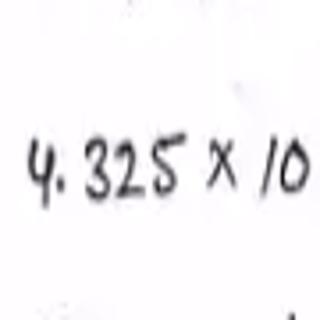 4. 325 x 10